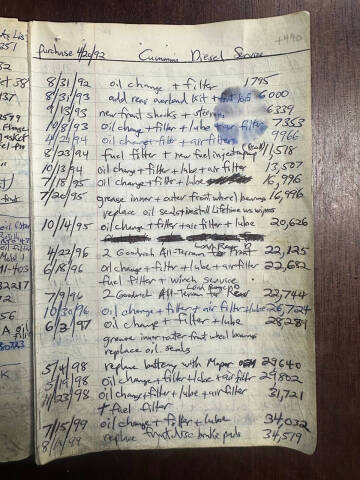 +490
purchase 4/20/92 Cummins Diesel Service
8/31/92 oil change + filter 1795
8/31/93 add rear overload kit + 6000
9/13/93 new front shocks + 6339
10/8/93 oil change + filter + lube air filter 7353
4/25/94 oil change + filter + air filter 9966
8/23/94 fuel filter + new fuel injector pump (Recall) 11,578
10/13/94 oil change + filter + lube + air filter 13,507
7/18/95 oil change + filter + lube 16,996
7/20/95 grease inner + outer front wheel bearings 16,996
replace oil seals + install lifetime wipers
10/14/95 oil change + filter + air filter + lube 20,626
4/22/96 2 Goodrich All-Terrain Front 22,125
6/18/96 oil change + filter + lube + air filter 22,682
fuel filter + winch service
7/9/96 2 Goodrich All-Terrain Rear 22,744
10/30/96 oil change + filter + air filter + lube 26,724
6/2/97 oil change + filter + lube 28,289
grease inner + outer front wheel bearings
replace oil seals
5/4/98 replace battery with Mopar 29640
5/15/98 oil change + filter + lube + air filter 29802
11/23/98 oil change + filter + lube + air filter 31,721
+ fuel filter
7/15/99 oil change + filter + lube 34,032
8/19/99 replace front disc brake pads 34,519